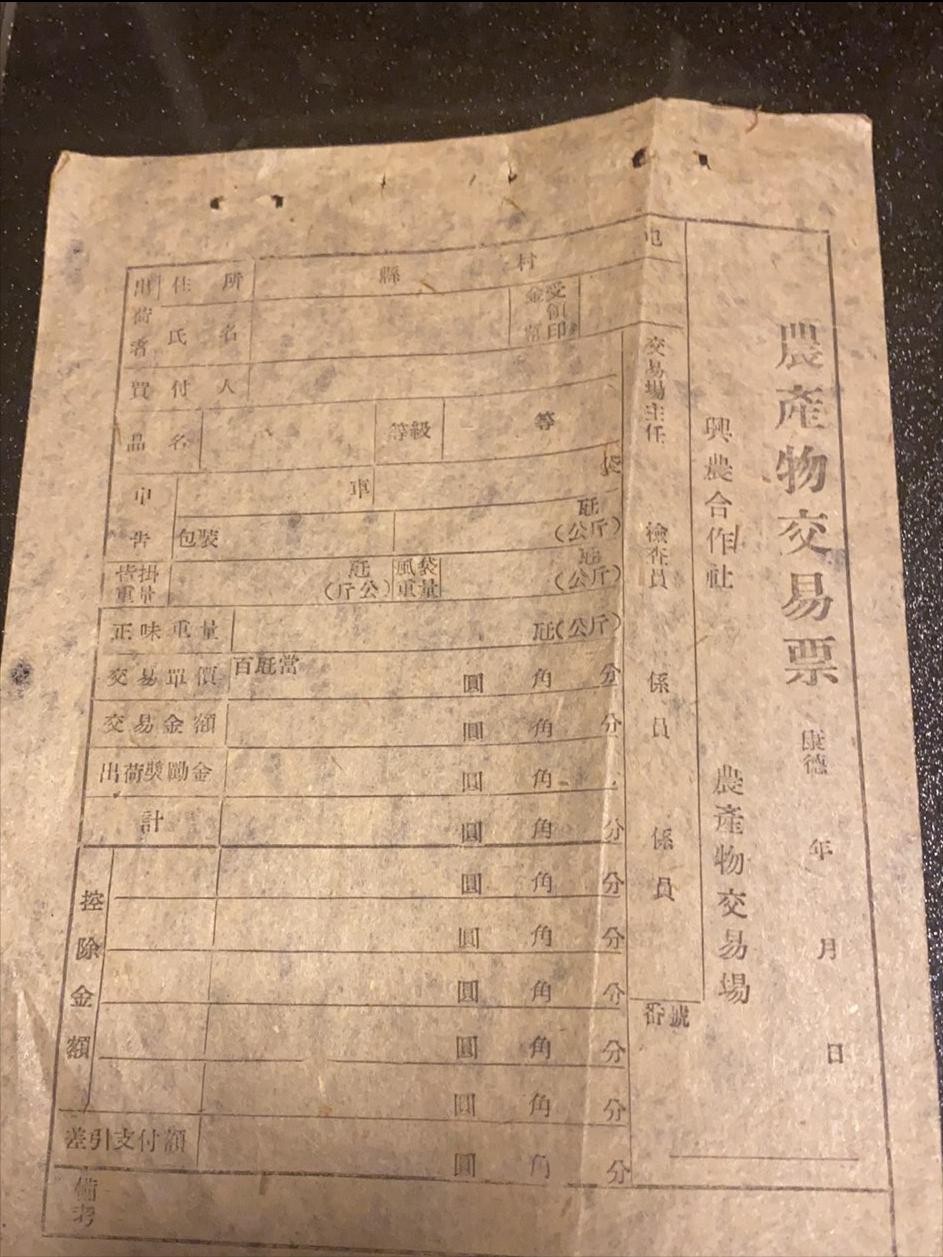 農產物交易票
康德
年
月
日
興農合作社
農產物交易場
番號
交易場主任
檢查員
係員
係員
出荷者
住所
縣
村
屯
氏名
金票受領印
買付人
品名
等級
等
申告
車
袋
包裝
瓩
(公斤)
皆掛重量
瓩
(斤公)
風袋重量
瓩
(公斤)
正味重量
瓩(公斤)
交易單價
百瓩當
圓 角 分
交易金額
圓 角 分
出荷獎勵金
圓 角
計
圓 角 分
控除金額
圓 角 分
圓 角 分
圓 角 分
圓 角 分
圓 角 分
差引支付額
圓 角 分
備考